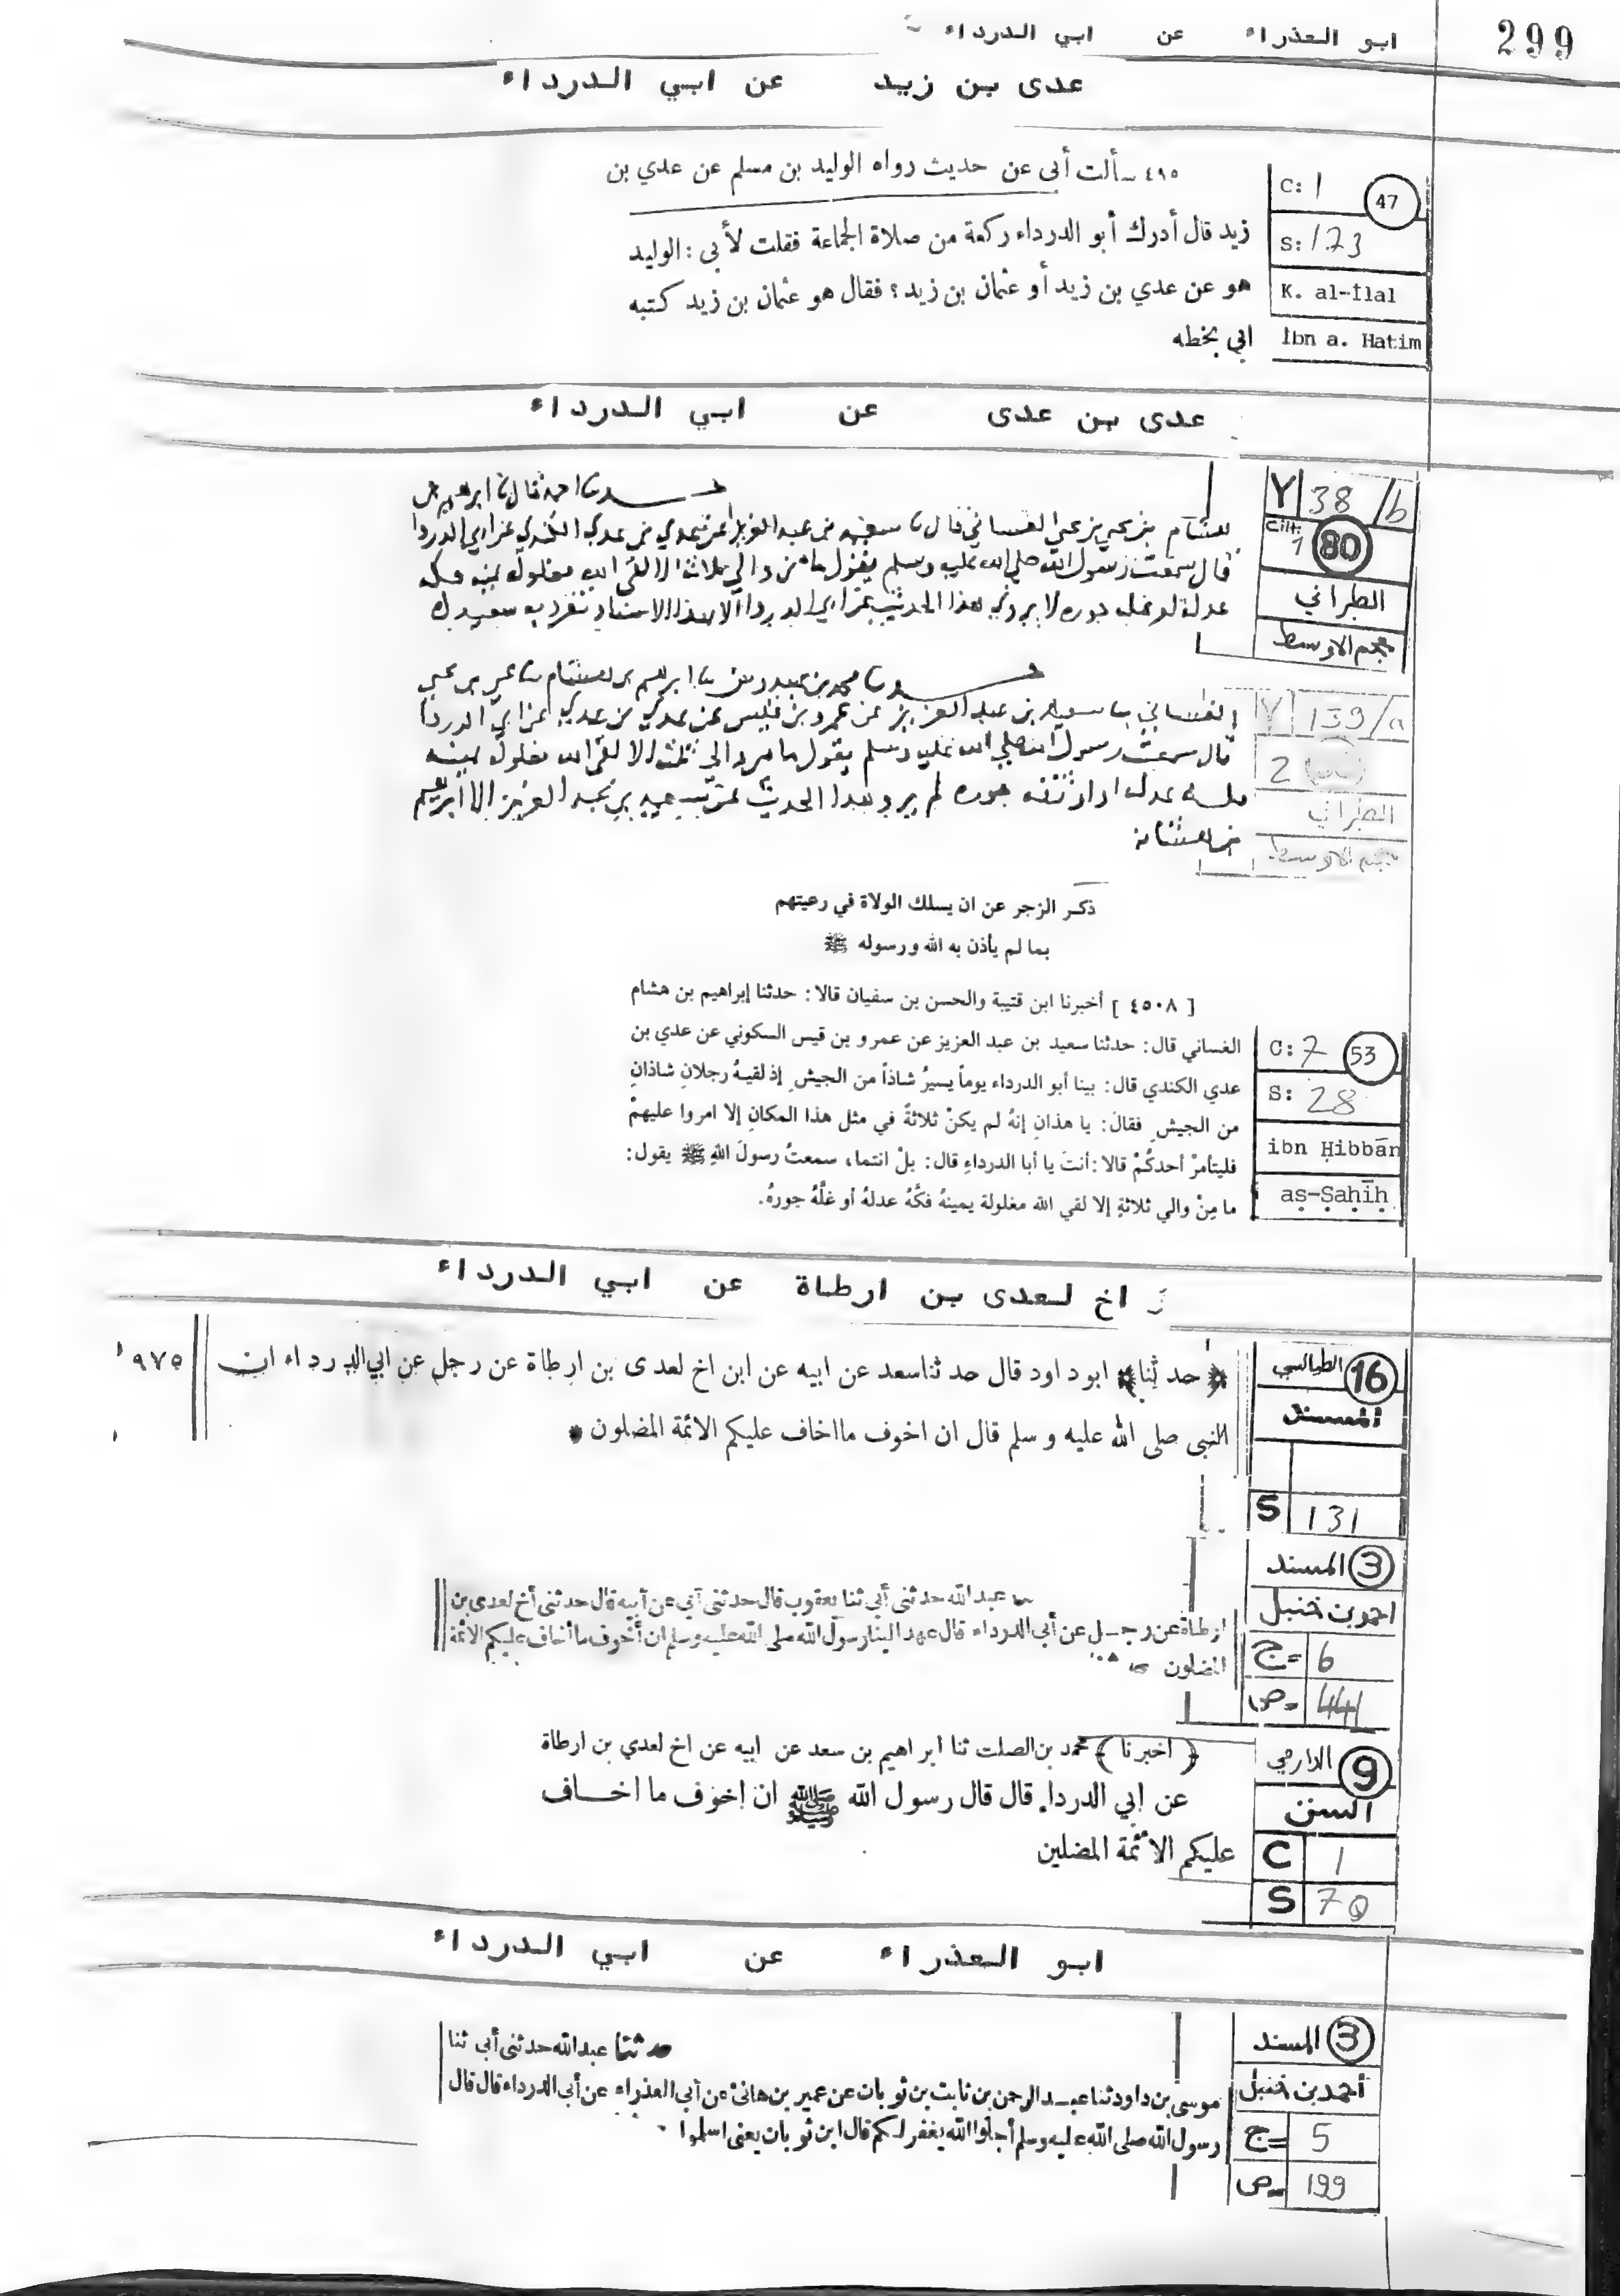 299
ابو العذراء عن ابي الدرداء
عدى بن زيد عن ابي الدرداء
C: 1
47
S: 173
K. al-İlal
İbn a. Hatim
٤٩٥ ـ سألت أبى عن حديث رواه الوليد بن مسلم عن عدي بن
زيد قال أدرك أبو الدرداء ركعة من صلاة الجماعة فقلت لأبى : الوليد
هو عن عدي بن زيد أو عثمان بن زيد ؟ فقال هو عثمان بن زيد كتبه
ابي بخطه
عدى بن عدى عن ابي الدرداء
Y 38/b
Cilt: 1
80
الطبراني
معجم الاوسط
حدثنا احمد قال نا ابراهيم بن
هشام بن يحيى بن يحيى الغساني قال نا سعيد بن عبد العزيز عن عدي بن عدي الكندي عن ابي الدردا
قال سمعت رسول الله صلي الله عليه وسلم يقول ما من والي ثلاثة الا لقي الله مغلولة يمينه فكه
عدله او غله جوره لا يروي هذا الحديث عن ابي الدردا الا بهذا الاسناد تفرد به سعيد بن
Y 139/a
2
الطبراني
معجم الاوسط
حدثنا محمد بن عبدوس نا ابرهيم بن هشام بن يحيى بن يحيى
الغساني نا سعيد بن عبد العزيز عن عمرو بن قيس عن عدي بن عدي عن ابي الدردا
قال سمعت رسول الله صلي الله عليه وسلم يقول ما من والي ثلثة الا لقي الله مغلولة يمينه
فكه عدله او اوثقه جوره لم يرو هذا الحديث عن سعيد بن عبد العزيز الا ابرهيم
بن هشام
ذكر الزجر عن ان يسلك الولاة في رعيتهم
بما لم يأذن به الله ورسوله ﷺ
[ ٤٥٠٨ ] أخبرنا ابن قتيبة والحسن بن سفيان قالا : حدثنا إبراهيم بن هشام
الغساني قال : حدثنا سعيد بن عبد العزيز عن عمرو بن قيس السكوني عن عدي بن
عدي الكندي قال : بينا أبو الدرداء يوماً يسيرُ شاذاً من الجيشِ إذ لقيهُ رجلانِ شاذانِ
من الجيشِ فقالَ : يا هذانِ إنهُ لم يكنْ ثلاثةً في مثل هذا المكانِ إلا امروا عليهمْ
فليتأمرْ أحدكُمْ قالا : أنتَ يا أبا الدرداءِ قال : بلْ انتما ، سمعتُ رسولَ اللهِ ﷺ يقول :
ما مِنْ والي ثلاثةٍ إلا لقي الله مغلولة يمينهُ فكَّهُ عدلهُ أو غلَّهُ جورهُ .
C: 7
53
S: 28
ibn Ḥibbān
aṣ-Ṣaḥīḥ
اخ لعدى بن ارطاة عن ابي الدرداء
الطيالسي
16
المسند
S 131
٩٧٥
﴿ حدثنا ﴾ ابو داود قال حدثنا سعد عن ابيه عن ابن اخ لعدى بن ارطاة عن رجل عن ابي الدرداء ان
النبى صلى الله عليه وسلم قال ان اخوف ما اخاف عليكم الائمة المضلون
المسند
3
احمد بن حنبل
ج = 6
ص = 441
عبد الله حدثنى أبى ثنا يعقوب قال حدثنى أبى عن أبيه قال حدثنى أخ لعدى بن
ارطاة عن رجل عن أبى الدرداء قال عهد الينا رسول الله صلى الله عليه وسلم ان أخوف ما أخاف عليكم الائمة
المضلون
الدارمي
9
السنن
C 1
S 70
﴿ اخبرنا ﴾ محمد بن الصلت ثنا ابراهيم بن سعد عن ابيه عن اخ لعدي بن ارطاة
عن ابي الدرداء قال قال رسول الله ﷺ ان اخوف ما اخاف
عليكم الأئمة المضلين
ابو العذراء عن ابي الدرداء
المسند
3
أحمد بن حنبل
ج = 5
ص = 199
حدثنا عبد الله حدثنى أبى ثنا
موسى بن داود ثنا عبد الرحمن بن ثابت بن ثوبان عن عمير بن هانئ عن أبى العذراء عن أبى الدرداء قال قال
رسول الله صلى الله عليه وسلم أجلوا الله يغفر لكم قال ابن ثوبان يعنى اسلموا